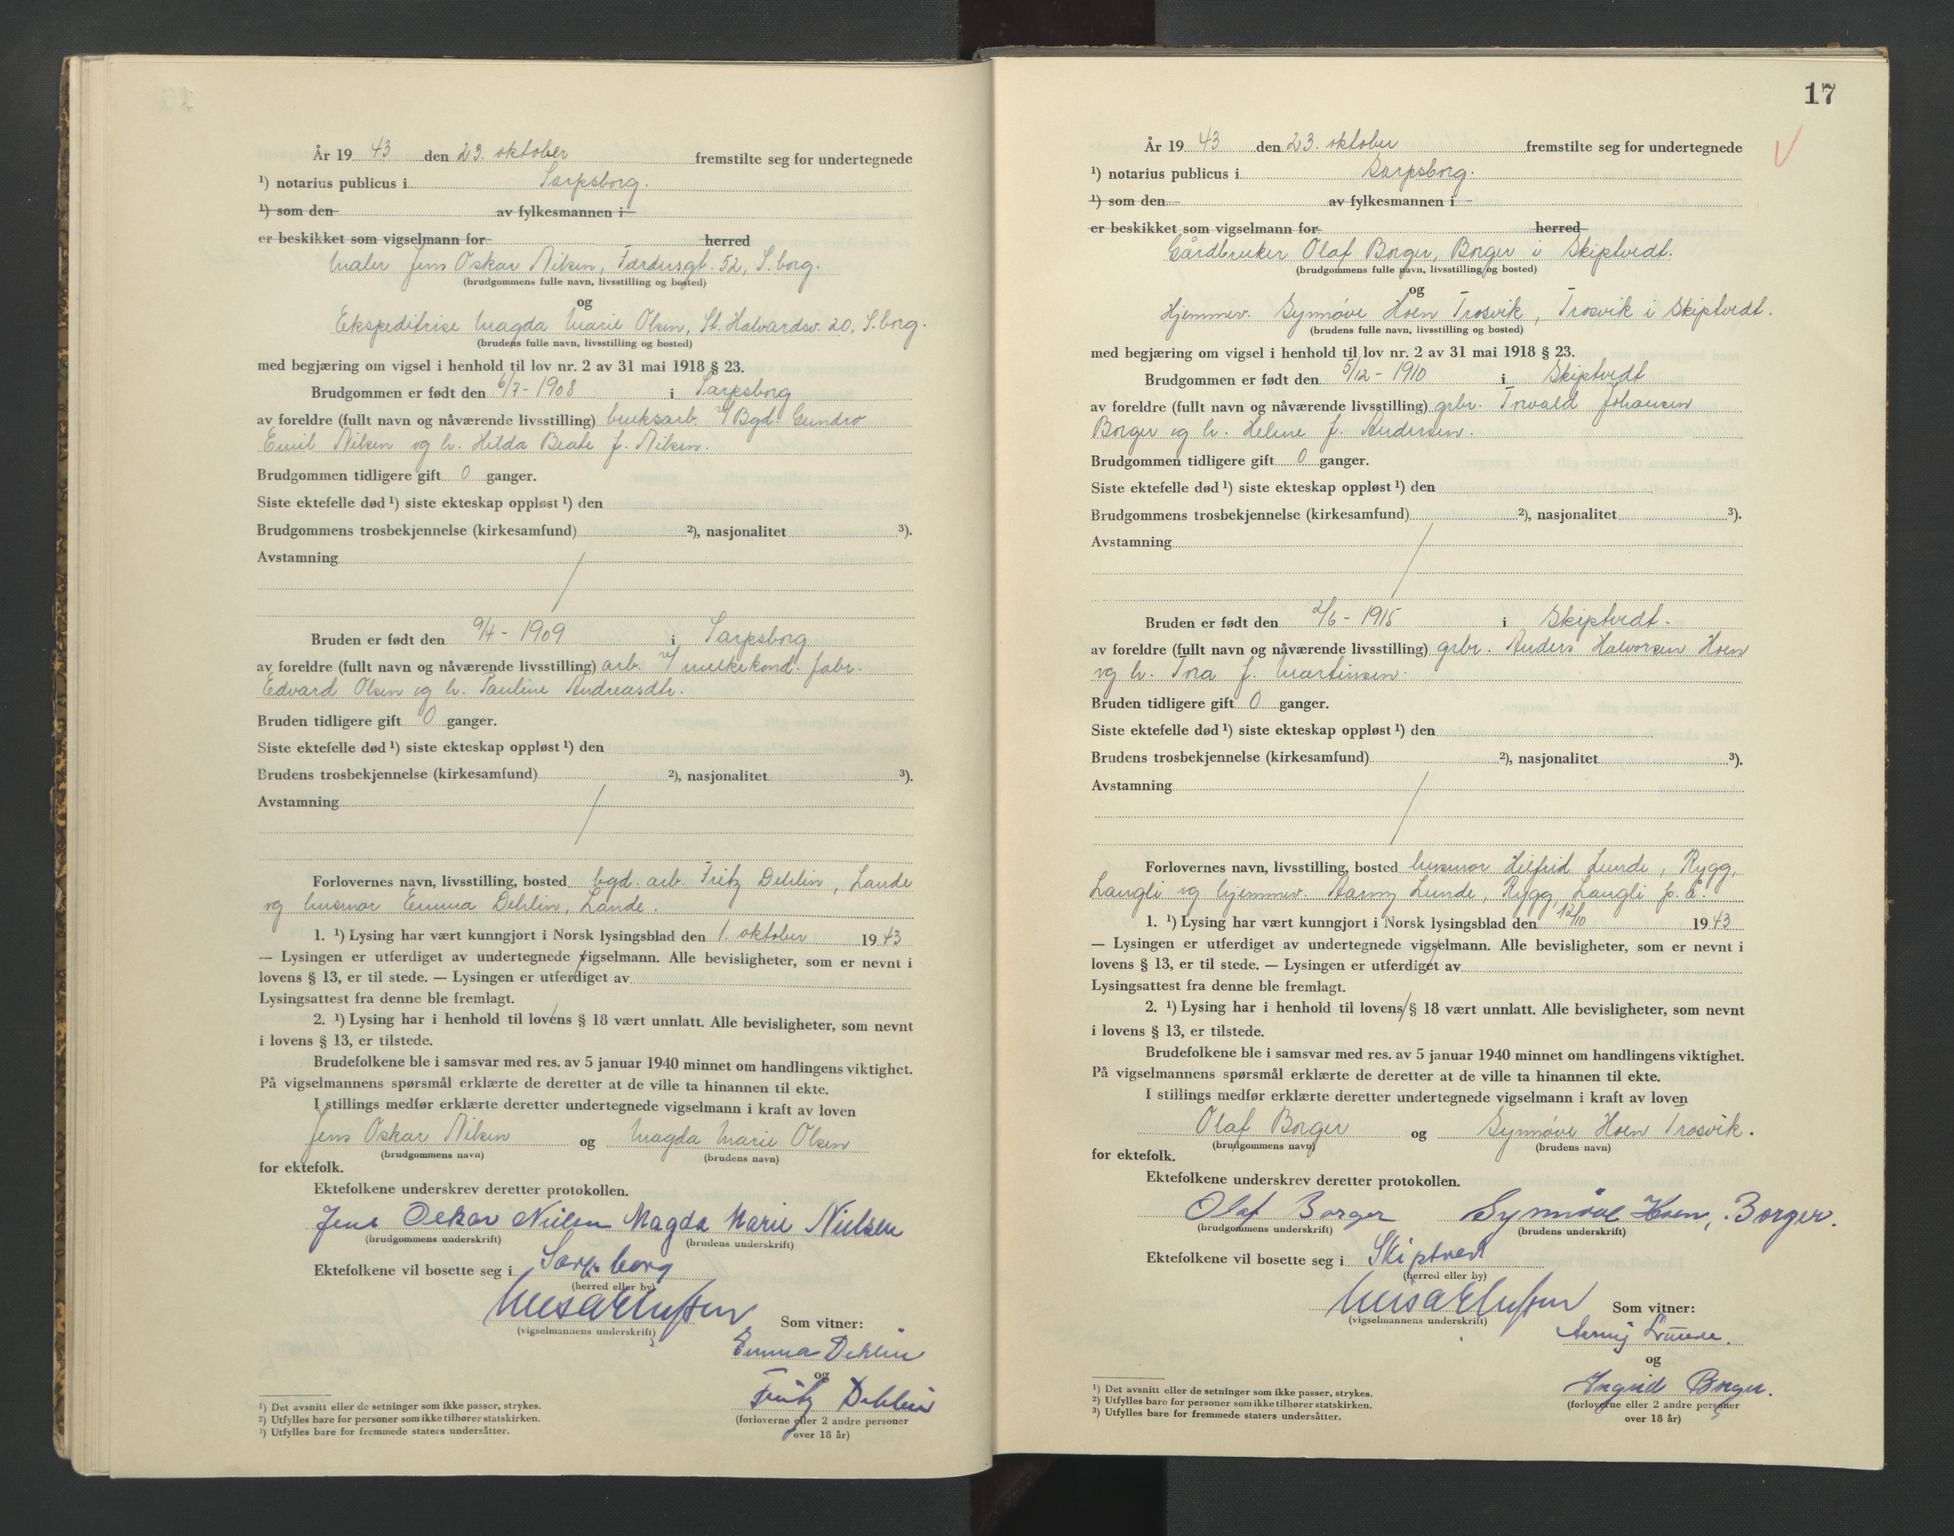 År 19 43 den 23. oktober fremstilte seg for undertegnede
¹) notarius publicus i Sarpsborg.
¹) som den av fylkesmannen i
er beskikket som vigselmann for herred
Maler Jens Oskar Nilsen, Færdersgt. 52, S.borg.
(brudgommens fulle navn, livsstilling og bosted)
og
Ekspeditrise Magda Marie Olsen, St. Halvardsv. 20, S.borg.
(brudens fulle navn, livsstilling og bosted)
med begjæring om vigsel i henhold til lov nr. 2 av 31 mai 1918 § 23.
Brudgommen er født den 6/7 - 1908 i Sarpsborg
av foreldre (fullt navn og nåværende livsstilling) bruksarb. v/ Bgd. Gundro
Emil Nilsen og h. Hilda Beate f. Nilsen.
Brudgommen tidligere gift 0 ganger.
Siste ektefelle død ¹) siste ekteskap oppløst ¹) den
Brudgommens trosbekjennelse (kirkesamfund) ²), nasjonalitet ³).
Avstamning
Bruden er født den 9/4 - 1909 i Sarpsborg
av foreldre (fullt navn og nåværende livsstilling) arb. v/ melkekond. fabr.
Edvard Olsen og h. Pauline Andreasdtr.
Bruden tidligere gift 0 ganger.
Siste ektefelle død ¹) siste ekteskap oppløst ¹) den
Brudens trosbekjennelse (kirkesamfund) ²), nasjonalitet ³).
Avstamning
Forlovernes navn, livsstilling, bosted bgd. arb. Fritz Dehlin, Lande
og husmor Emma Dehlin, Lande.
1. ¹) Lysing har vært kunngjort i Norsk lysingsblad den 1. oktober 1943
— Lysingen er utferdiget av undertegnede vigselmann. Alle bevisligheter, som er nevnt i
lovens § 13, er til stede. — Lysingen er utferdiget av
Lysingsattest fra denne ble fremlagt.
2. ¹) Lysing har i henhold til lovens § 18 vært unnlatt. Alle bevisligheter, som nevnt
i lovens § 13, er tilstede.
Brudefolkene ble i samsvar med res. av 5 januar 1940 minnet om handlingens viktighet.
På vigselmannens spørsmål erklærte de deretter at de ville ta hinannen til ekte.
I stillings medfør erklærte deretter undertegnede vigselmann i kraft av loven
Jens Oskar Nilsen og Magda Marie Olsen
(brudgommens navn) (brudens navn)
for ektefolk.
Ektefolkene underskrev deretter protokollen.
Jens Oskar Nielsen Magda Marie Nielsen
(brudgommens underskrift) (brudens underskrift)
Ektefolkene vil bosette seg i Sarpsborg
(herred eller by)
(vigselmannens underskrift)
Som vitner:
Emma Dehlin
og
Fritz Dehlin
(forloverne eller 2 andre personer
over 18 år)
¹) Det avsnitt eller de setninger som ikke passer, strykes.
²) Utfylles bare for personer som ikke tilhører statskirken.
³) Utfylles bare for fremmede staters undersåtter.
17
År 19 43 den 23. oktober fremstilte seg for undertegnede
¹) notarius publicus i Sarpsborg.
¹) som den av fylkesmannen i
er beskikket som vigselmann for herred
Gårdbruker Olaf Borger, Borger i Skiptvedt.
(brudgommens fulle navn, livsstilling og bosted)
og
Hjemmev. Synnøve Hoen Trosvik, Trosvik i Skiptvedt.
(brudens fulle navn, livsstilling og bosted)
med begjæring om vigsel i henhold til lov nr. 2 av 31 mai 1918 § 23.
Brudgommen er født den 5/12 - 1910 i Skiptvedt
av foreldre (fullt navn og nåværende livsstilling) grbr. Torvald Johansen
Borger og h. Helene f. Andersen.
Brudgommen tidligere gift 0 ganger.
Siste ektefelle død ¹) siste ekteskap oppløst ¹) den
Brudgommens trosbekjennelse (kirkesamfund) ²), nasjonalitet ³).
Avstamning
Bruden er født den 2/6 - 1915 i Skiptvedt.
av foreldre (fullt navn og nåværende livsstilling) grbr. Anders Halvorsen Hoen
og h. Tora f. Martinsen.
Bruden tidligere gift 0 ganger.
Siste ektefelle død ¹) siste ekteskap oppløst ¹) den
Brudens trosbekjennelse (kirkesamfund) ²), nasjonalitet ³).
Avstamning
Forlovernes navn, livsstilling, bosted husmor Helfrid Lunde, Rygg,
Langli og hjemmev. Aasny Lunde, Rygg, Langli p. å.
1. ¹) Lysing har vært kunngjort i Norsk lysingsblad den 12/10 1943
— Lysingen er utferdiget av undertegnede vigselmann. Alle bevisligheter, som er nevnt i
lovens § 13, er til stede. — Lysingen er utferdiget av
Lysingsattest fra denne ble fremlagt.
2. ¹) Lysing har i henhold til lovens § 18 vært unnlatt. Alle bevisligheter, som nevnt
i lovens § 13, er tilstede.
Brudefolkene ble i samsvar med res. av 5 januar 1940 minnet om handlingens viktighet.
På vigselmannens spørsmål erklærte de deretter at de ville ta hinannen til ekte.
I stillings medfør erklærte deretter undertegnede vigselmann i kraft av loven
Olaf Borger og Synnøve Hoen Trosvik.
(brudgommens navn) (brudens navn)
for ektefolk.
Ektefolkene underskrev deretter protokollen.
Olaf Borger Synnøve Hoen, Borger.
(brudgommens underskrift) (brudens underskrift)
Ektefolkene vil bosette seg i Skiptvet
(herred eller by)
(vigselmannens underskrift)
Som vitner:
Aasny Lunde.
og
Ingrid Borger.
(forloverne eller 2 andre personer
over 18 år)
¹) Det avsnitt eller de setninger som ikke passer, strykes.
²) Utfylles bare for personer som ikke tilhører statskirken.
³) Utfylles bare for fremmede staters undersåtter.